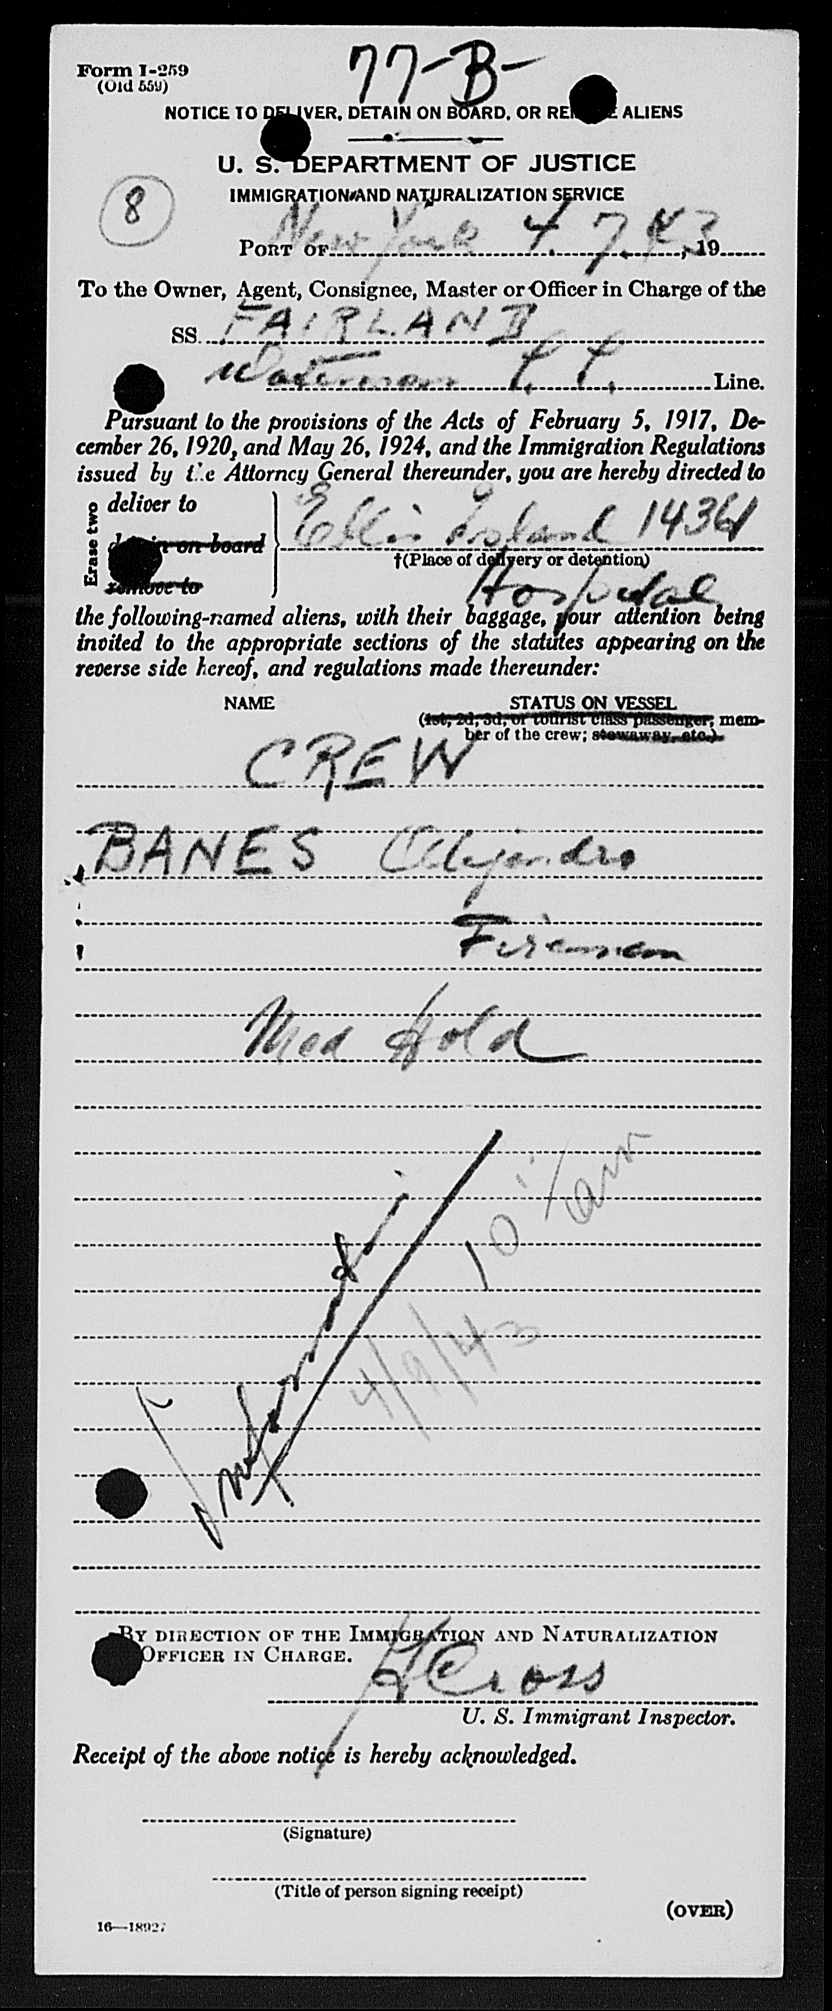 Form I-259
(Old 559)
77-B-
NOTICE TO DELIVER, DETAIN ON BOARD, OR REMOVE ALIENS
U. S. DEPARTMENT OF JUSTICE
IMMIGRATION AND NATURALIZATION SERVICE
8
PORT OF New York 4. 7. 43, 19
To the Owner, Agent, Consignee, Master or Officer in Charge of the
SS. FAIRLAND
Waterman Line.
Pursuant to the provisions of the Acts of February 5, 1917, De-
cember 26, 1920, and May 26, 1924, and the Immigration Regulations
issued by the Attorney General thereunder, you are hereby directed to
Erase two
deliver to
detain on board
remove to
Ellis Island
†(Place of delivery or detention)
Hospital
the following-named aliens, with their baggage, your attention being
invited to the appropriate sections of the statutes appearing on the
reverse side hereof, and regulations made thereunder:
NAME STATUS ON VESSEL
(1st, 2d, 3d, or tourist class passenger; mem-
ber of the crew; stowaway, etc.)
CREW
BANES Alejandro
Fireman
Med Hold
10 am
4/9/43
BY DIRECTION OF THE IMMIGRATION AND NATURALIZATION
OFFICER IN CHARGE.
H Cross
U. S. Immigrant Inspector.
Receipt of the above notice is hereby acknowledged.
(Signature)
(Title of person signing receipt)
(OVER)
16—18927